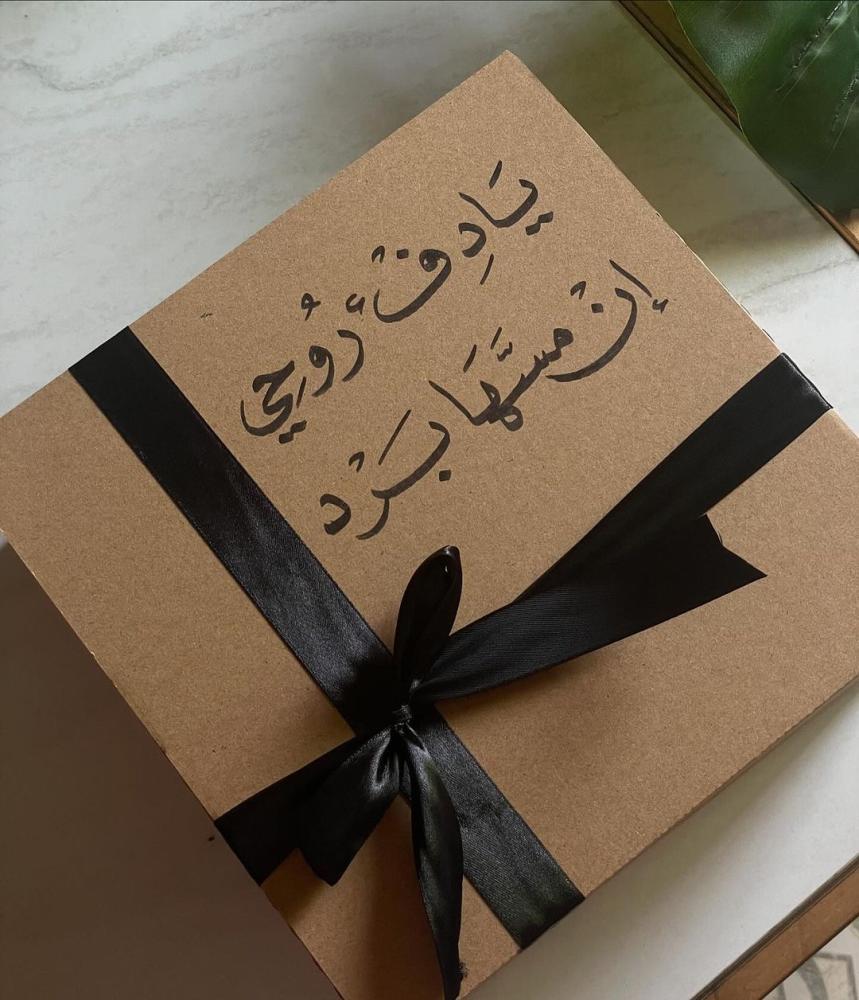 يَادِفْءَ رُوُحِي
إنْ مسَّهَا بَرْد